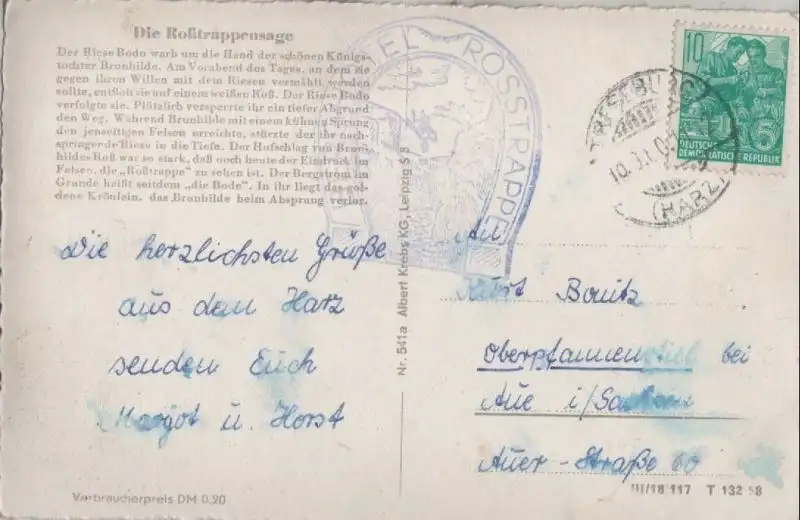 Die Roßtrappensage
Der Riese Bodo warb um die Hand der schönen Königs-
tochter Brunhilde. Am Vorabend des Tages, an dem sie
gegen ihren Willen mit dem Riesen vermählt werden
sollte, entfloh sie auf einem weißen Roß. Der Riese Bodo
verfolgte sie. Plötzlich versperrte ihr ein tiefer Abgrund
den Weg. Während Brunhilde mit einem kühnen Sprung
den jenseitigen Felsen erreichte, stürzte der ihr nach-
springende Riese in die Tiefe. Der Hufschlag von Brun-
hildes Roß war so stark, daß noch heute der Eindruck im
Felsen, die „Roßtrappe" zu sehen ist. Der Bergstrom im
Grunde heißt seitdem „die Bode". In ihr liegt das gol-
dene Krönlein, das Brunhilde beim Absprung verlor.
Die herzlichsten Grüße
aus dem Harz
senden Euch
Margot u. Horst
Verbraucherpreis DM 0.20
Nr. 541a Albert Krebs KG, Leipzig S 3
ROSSTRAPPE
10
5
DEUTSCHE
DEMOKRATISCHE REPUBLIK
(HARZ)
An
Kurt Bonitz
Oberpfannenstiel bei
Aue i/Sachsen
Auer-Straße 60
III/18/117 T 132 58